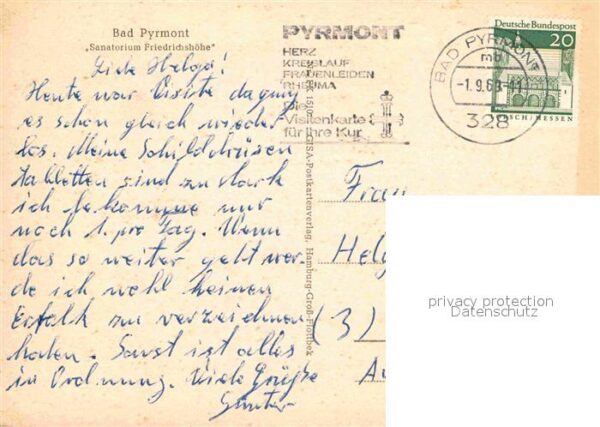 Bad Pyrmont
„Sanatorium Friedrichshöhe“
Liebe Helga!
Heute war Visite da ging
es schon gleich wieder
los. Meine Schilddrüsen
Tabletten sind zu stark
ich bekomme nur
noch 1. pro Tag. Wenn
das so weiter geht wer-
de ich wohl keinen
Erfolg zu verzeichnen
haben. Sonst ist alles
in Ordnung. Viele Grüße
Günter
PYRMONT
HERZ
KREISLAUF
FRAUENLEIDEN
RHEUMA
Die
Visitenkarte
für Ihre Kur
BAD PYRMONT
328
Deutsche Bundespost
20
LORSCH/HESSEN
KRISA-Postkartenverlag, Hamburg-Groß-Flottbek
Frau
Helg
(3)
privacy protection
Datenschutz